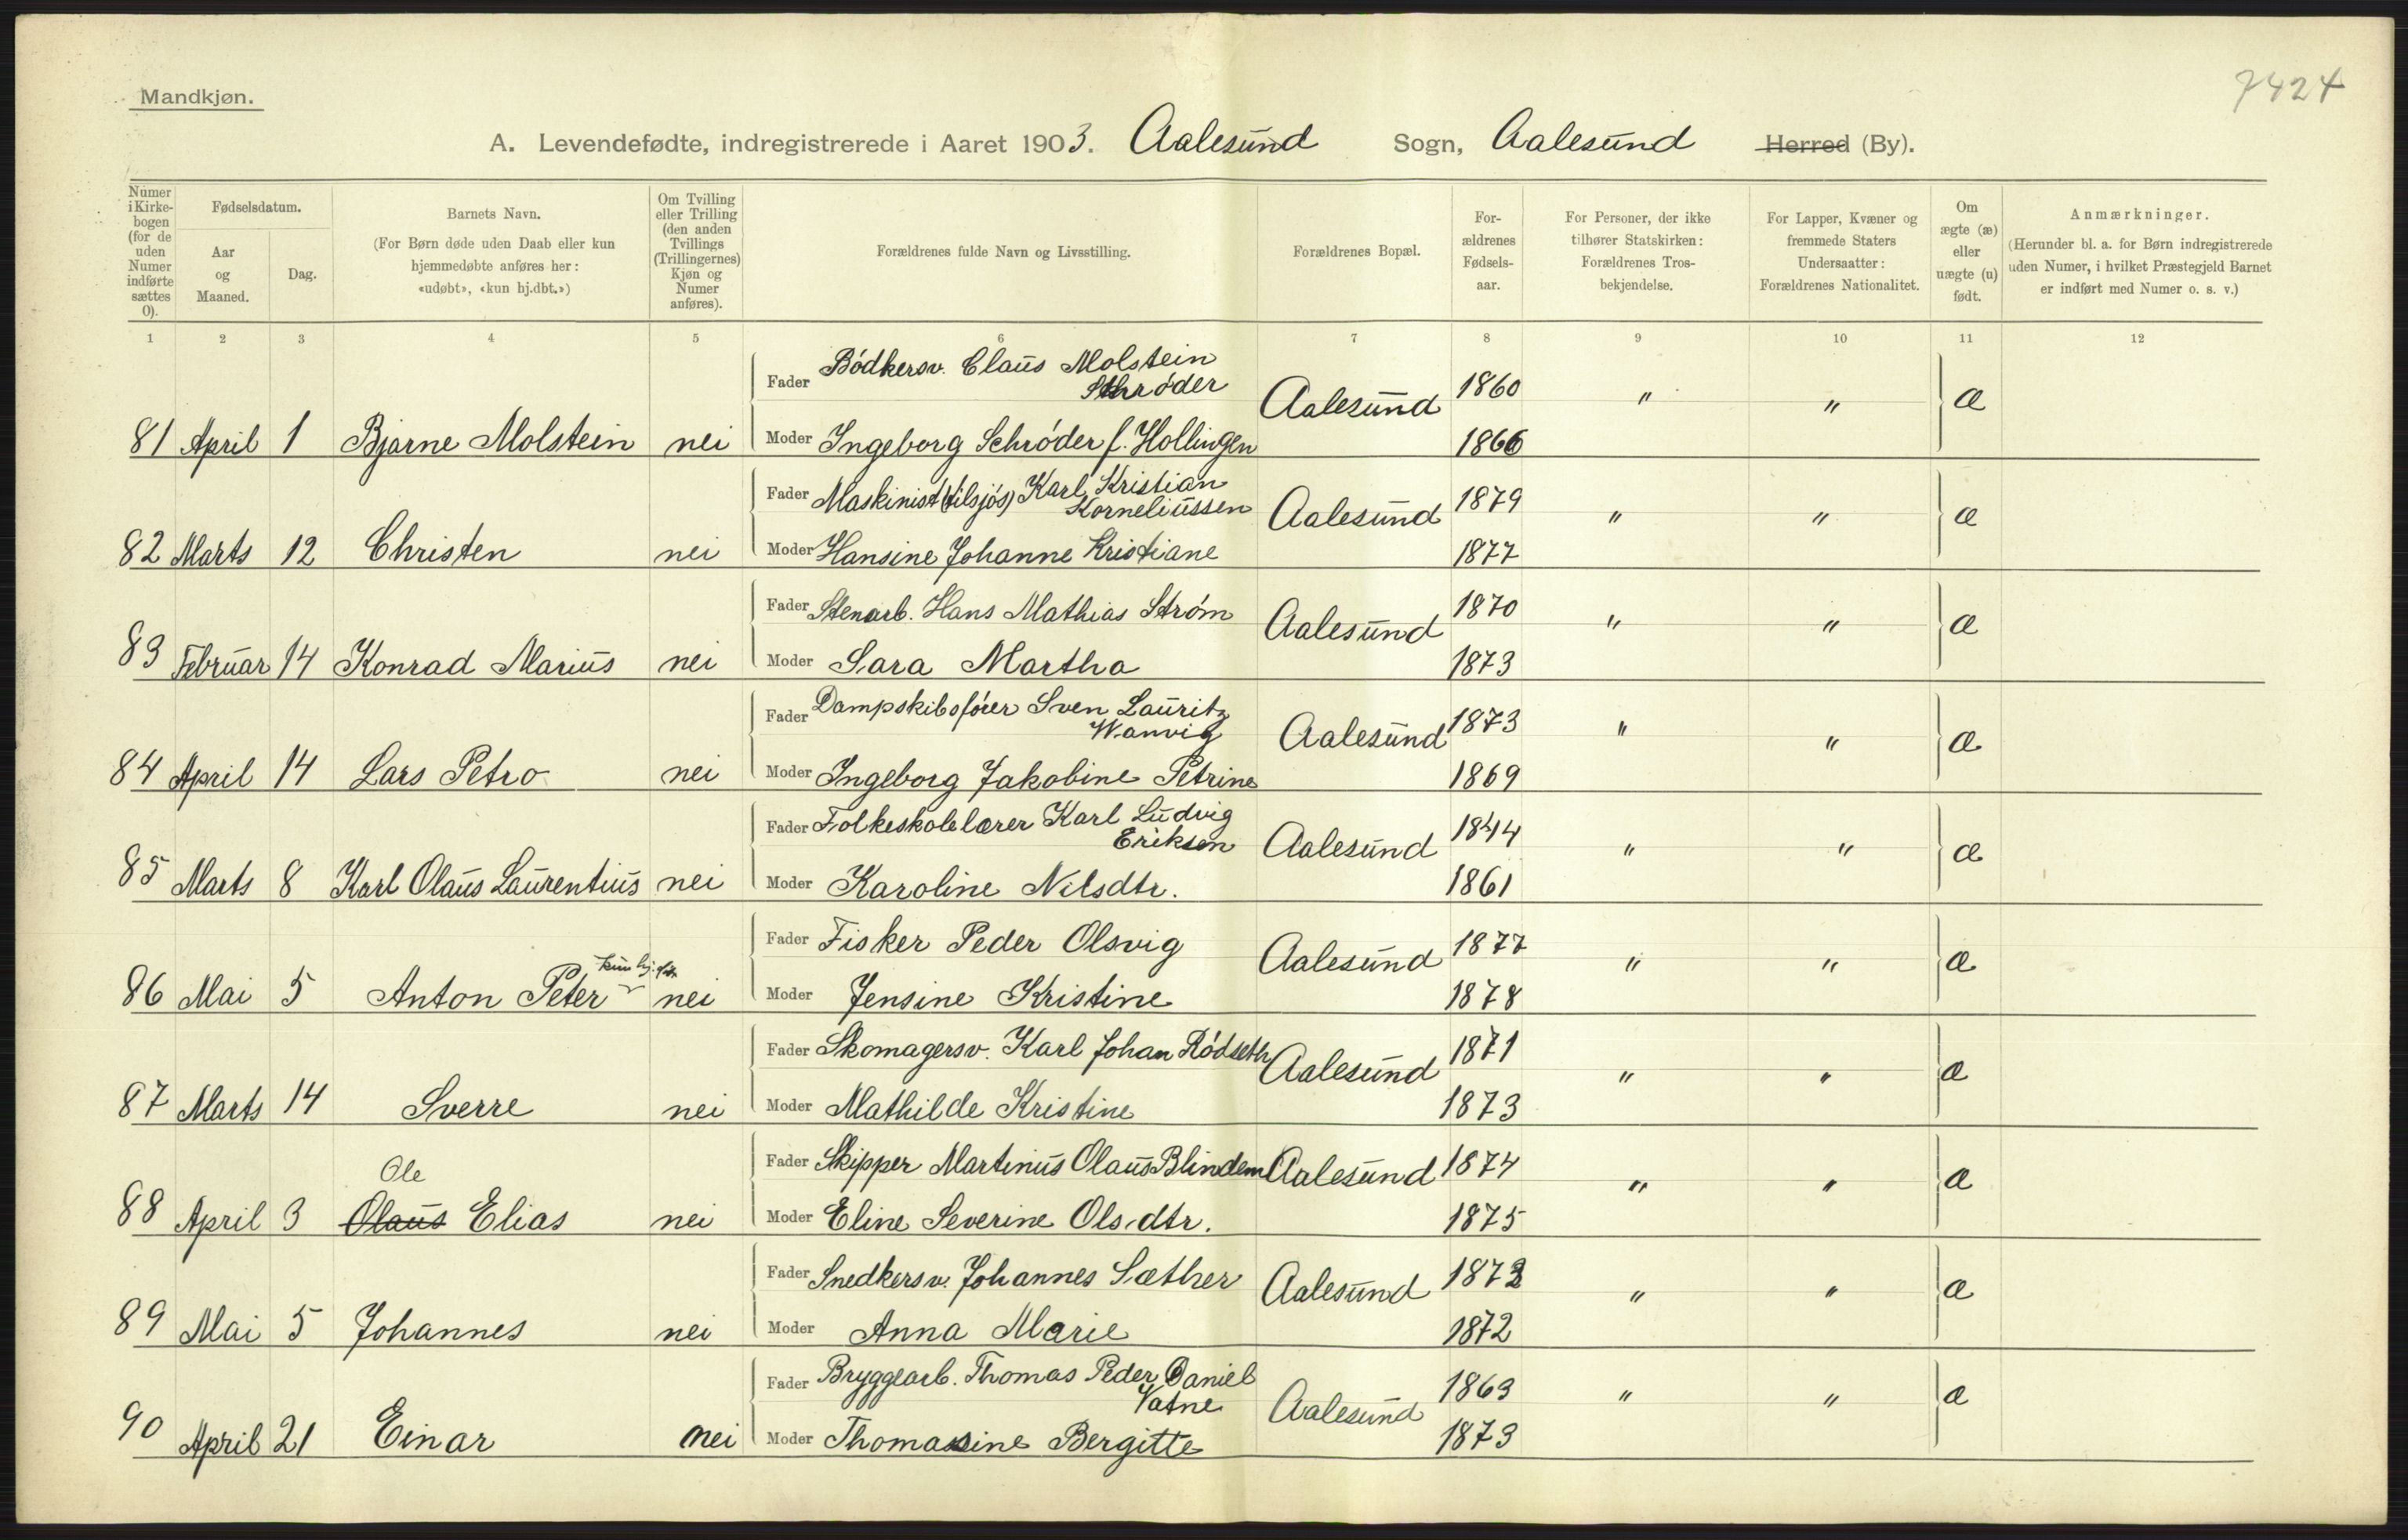 Mandkjøn.
7424
A. Levendefødte, indregistrerede i Aaret 1903. Aalesund Sogn, Aalesund Herred (By).
Numer i Kirkebogen (for de uden Numer indførte sættes 0).
Fødselsdatum.
Aar og Maaned.
Dag.
Barnets Navn.
(For Børn døde uden Daab eller kun hjemmedøbte anføres her: «udøbt», «kun hj.dbt.»)
Om Tvilling eller Trilling (den anden Tvillings (Trillingernes) Kjøn og Numer anføres).
Forældrenes fulde Navn og Livsstilling.
Forældrenes Bopæl.
For-ældrenes Fødsels-aar.
For Personer, der ikke tilhører Statskirken: Forældrenes Tros-bekjendelse.
For Lapper, Kvæner og fremmede Staters Undersaatter: Forældrenes Nationalitet.
Om ægte (æ) eller uægte (u) født.
Anmærkninger.
(Herunder bl. a. for Børn indregistrerede uden Numer, i hvilket Præstegjeld Barnet er indført med Numer o. s. v.)
1 2 3 4 5 6 7 8 9 10 11 12
Fader Bødkersv. Claus Molstein
Schrøder Aalesund 1860 " " æ
81 April 1 Bjarne Molstein nei Moder Ingeborg Schrøder f. Hollingen 1866
Fader Maskinist (tilsjøs) Karl Kristian
Korneliussen Aalesund 1879 " " æ
82 Marts 12 Christen nei Moder Hansine Johanne Kristiane 1877
Fader Stenarb. Hans Mathias Strøm Aalesund 1870 " " æ
83 Februar 14 Konrad Marius nei Moder Sara Martha 1873
Fader Dampskibsfører Sven Lauritz
Wanvig Aalesund 1873 " " æ
84 April 14 Lars Petro nei Moder Ingeborg Jakobine Petrine 1869
Fader Folkeskolelærer Karl Ludvig
Eriksen Aalesund 1844 " " æ
85 Marts 8 Karl Olaus Laurentius nei Moder Karoline Nilsdtr. 1861
Fader Fisker Peder Olsvig Aalesund 1877 " " æ
kun hj.dbt.
86 Mai 5 Anton Peter nei Moder Jensine Kristine 1878
Fader Skomagersv. Karl Johan Rødseth Aalesund 1871 " " æ
87 Marts 14 Sverre nei Moder Mathilde Kristine 1873
Fader Skipper Martinus Olaus Blindem Aalesund 1874 " " æ
Ole
88 April 3 Olaus Elias nei Moder Eline Severine Olsdtr. 1875
Fader Snedkersv. Johannes Sæther Aalesund 1872 " " æ
89 Mai 5 Johannes nei Moder Anna Marie 1872
Fader Bryggearb. Thomas Peder Daniel
Vatne Aalesund 1863 " " æ
90 April 21 Einar nei Moder Thomasine Bergitte 1873